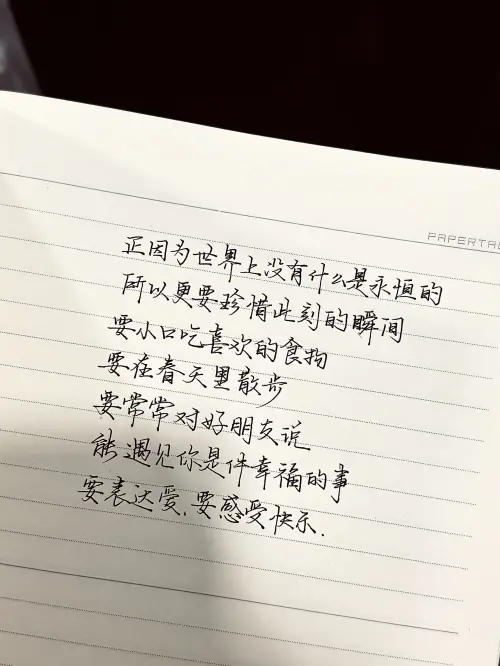 PAPERTAL
正因为世界上没有什么是永恒的
所以更要珍惜此刻的瞬间
要小口吃喜欢的食物
要在春天里散步
要常常对好朋友说
能遇见你是件幸福的事
要表达爱.要感受快乐.